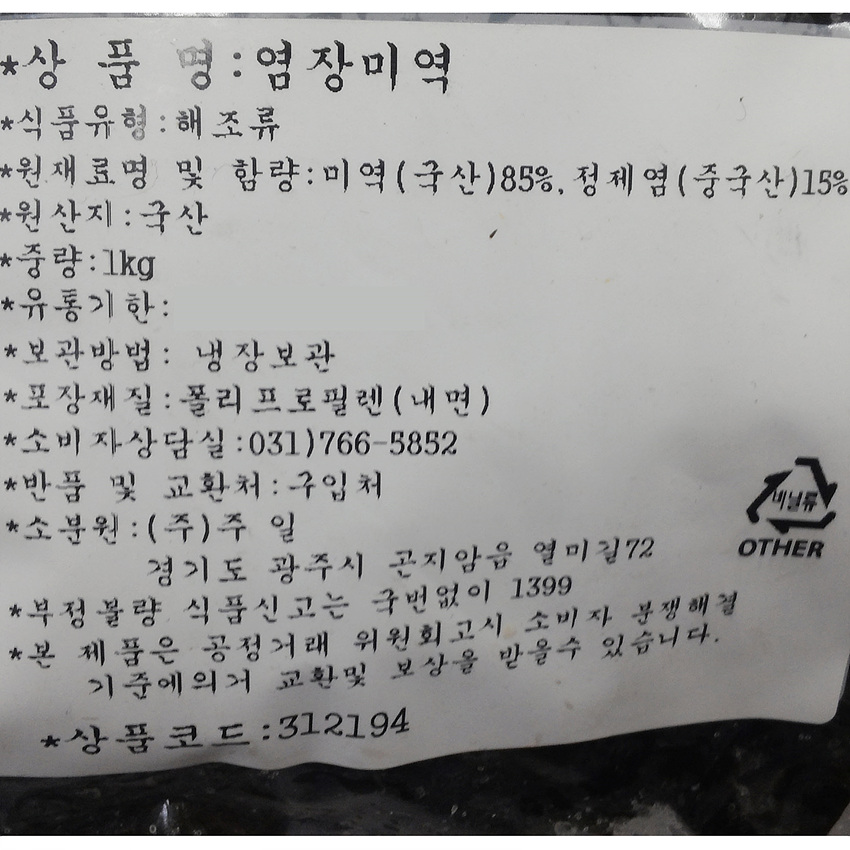 *상 품 명:염장미역
*식품유형:해조류
*원재료명 및 함량:미역(국산)85%, 정제염(중국산)15%
*원산지:국산
*중량:1kg
*유통기한:
*보관방법: 냉장보관
*포장재질:폴리프로필렌(내면)
*소비자상담실:031)766-5852
*반품 및 교환처:구입처
*소분원:(주)주 일
경기도 광주시 곤지암읍 열미길72
*부정불량 식품신고는 국번없이 1399
*본 제품은 공정거래 위원회고시 소비자 분쟁해결
기준에의거 교환및 보상을 받을수 있습니다.
*상품코드:312194
비닐류
OTHER